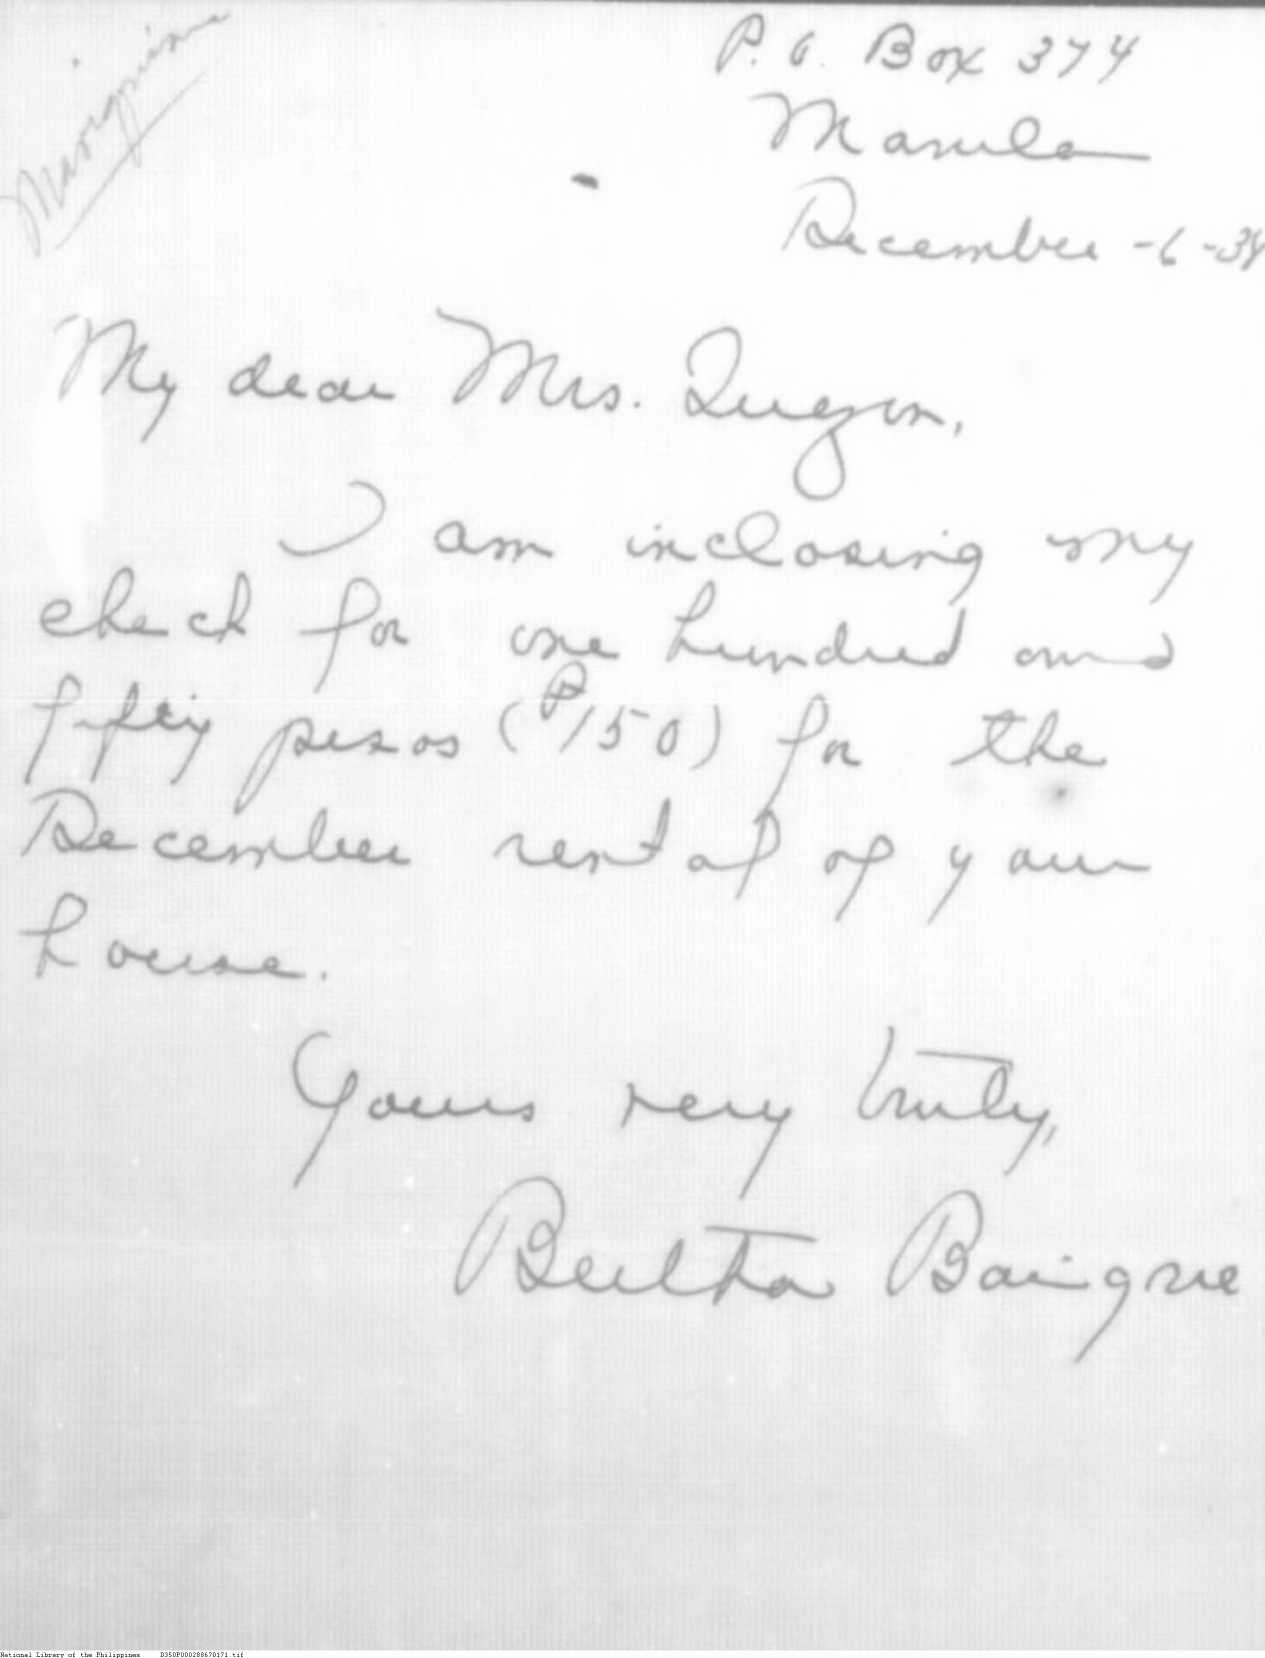 P. O. Box 374
Manila
December -6-38
My dear Mrs. Quezon,
I am inclosing my
check for one hundred and
fifty pesos (₱150) for the
December rental of your
house.
Yours very truly,
Bertha Baigrie
National Library of the Philippines D350P000288670171.tif